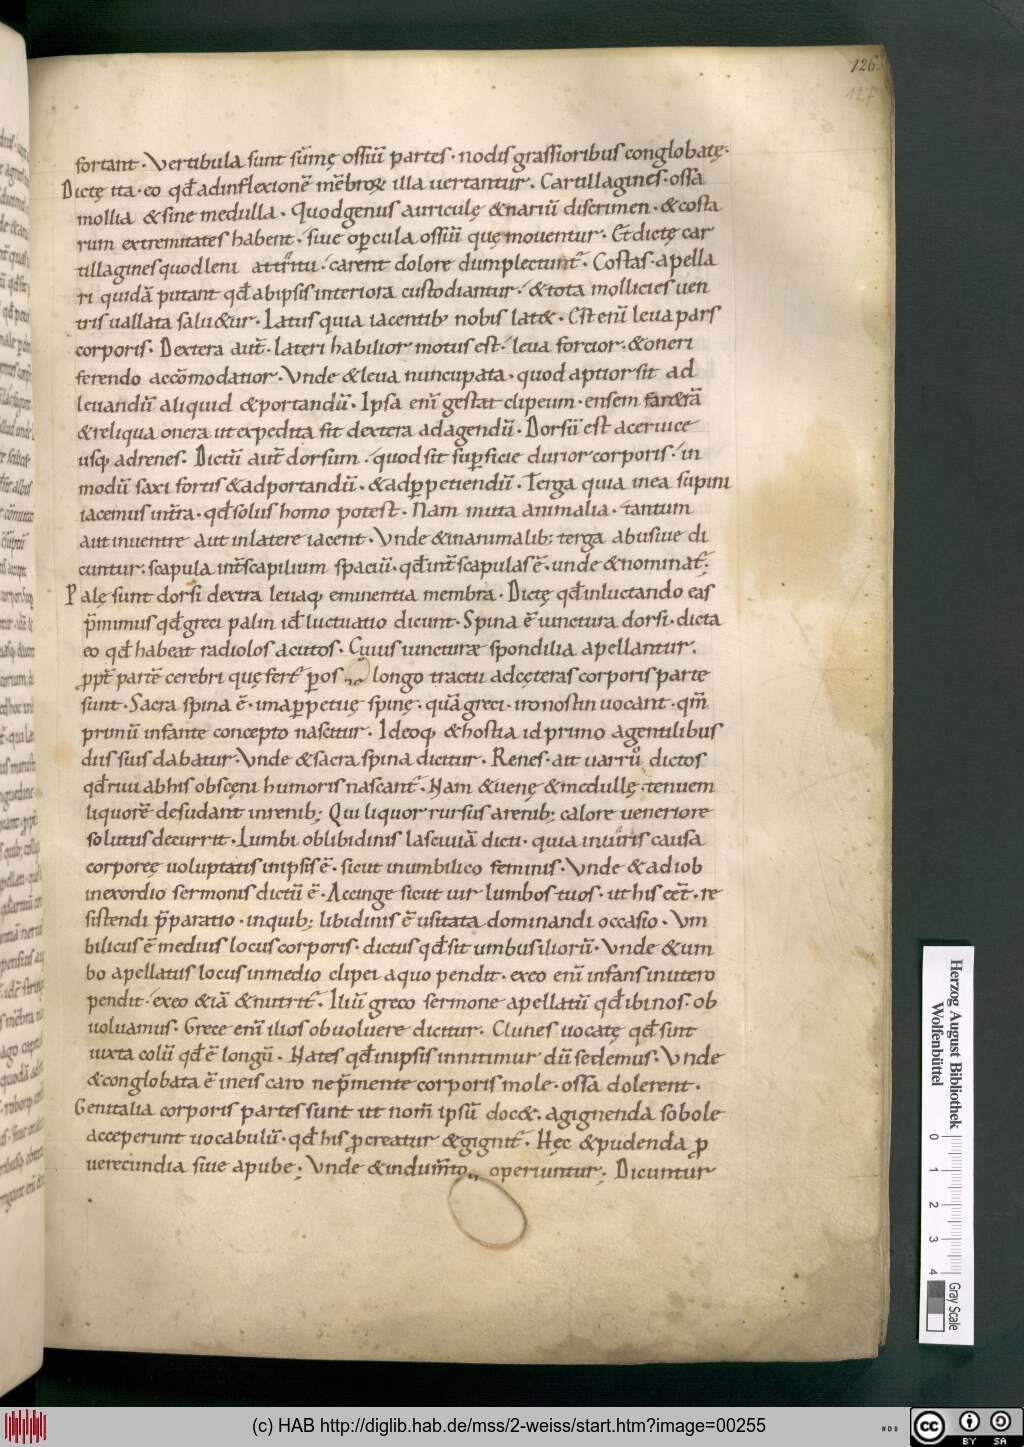 126.
127
fortant · Vertibula sunt sũmę ossiũ partes · nodis grassioribus conglobatę ·
Dictę ita · eo qđ adinflexionẽ mẽbroꝝ illa uertantur · Cartillagines · ossa
mollia & sine medulla · Quodgenus auriculę & nariũ discrimen · & costa
rum extremitates habent · siue oꝑcula ossiũ quę mouentur · Et dictę car
tillagines quod leni attritu · carent dolore dum plectunt᷑ · Costas · apella
ri quidã putant qđ abipsis interiora custodiantur · & tota mollicies uen
tris uallata salu&ur · Latus quia iacentibꝰ nobis lat& · Est enĩ leua pars
corporis · Dextera aut᷑ · lateri habilior motus est · leua forcior · & oneri
ferendo accõmodatior · Vnde & leua nuncupata · quod aptior sit ad
leuandũ aliquid & portandũ · Ipsa enĩ gestat clipeum · ensem far&rã
& reliqua onera ut expedita sit dextera adagendũ · Dorsũ est aceruice
usqꝫ adrenes · Dictũ aut᷑ dorsum · quod sit suꝑficie durior corporis · in
modũ saxi fortis & adportandũ · & adꝑpetiendũ · Terga quia inea supini
iacemus int᷑ra · qđ solus homo potest · Nam muta animalia · tantum
aut inuentre aut inlatere iacent · Vnde & inanimalibꝫ terga abusiue di
cuntur · scapula int᷑scapilium spaciũ · qđ int᷑ scapulas ẽ · unde & nominat᷑ ·
Palę sunt dorsi dextra leuaqꝫ eminentia membra · Dictę qđ inluctando eas
p̃mimus qđ greci palin id luctuatio dicunt · Spina ẽ iunctura dorsi · dicta
eo qđ habeat radiolos acutos · Cuius iuncturæ spondilia apellantur ·
ꝓpt᷑ partẽ cerebri quę fert᷑ ꝑos longo tractu adcęteras corporis parte
sunt · Sacra spina ẽ · ima ꝑpetuę spinę · quã greci · ironostin uocant · qm̃
primũ infante concepto nascitur · Ideoqꝫ & hostia id primo agentilibus
diis suis dabatur · Vnde & sacra spina dicitur · Renes · ait uarro dictos
qđ riui abhis obscęni humoris nascant᷑ · Nam & uenę & medullę · tenuem
liquorẽ desudant inrenibꝫ Qui liquor rursus arenibꝫ calore ueneriore
solutus decurrit · Lumbi oblibidinis lasciuiã dicti · quia inuiris causa
corporeę uoluptatis inipsis ẽ · sicut inumbilico feminis · Vnde & ad iob
inexordio sermonis dictũ ẽ · Accinge sicut uir lumbos tuos · ut his eẽt · re
sistendi p̃paratio · inquibꝫ libidinis ẽ usitata dominandi occasio · Vm
bilicus ẽ medius locus corporis · dictus qđ sit umbus iliorũ · Vnde & um
bo apellatus locus inmedio clipei aquo pendit · exeo enĩ infans inutero
pendit · exeo & iã & nutrit᷑ · Iliũ greco sermone apellatũ qđ ibi nos · ob
uoluamus · Grece enĩ ilios obuoluere dicitur · Clunes uocatę qđ sint
iuxta colũ qđ ẽ longũ · Nates qđ inipsis innitimur dũ sedemus · Vnde
& conglobata ẽ ineis caro ne p̃mente corporis mole · ossa dolerent ·
Genitalia corporis partes sunt ut nom̃ ipsũ doc& · agignenda sobole
acceperunt uocabulũ · qđ his ꝓcreatur & gignit᷑ · Hęc & pudenda ꝓ
uerecundia siue apube · Vnde & indum̃to operiuntur · Dicuntur
Herzog August Bibliothek
Wolfenbüttel
0 1 2 3 4
Gray Scale
(c) HAB http://diglib.hab.de/mss/2-weiss/start.htm?image=00255
cc BY SA